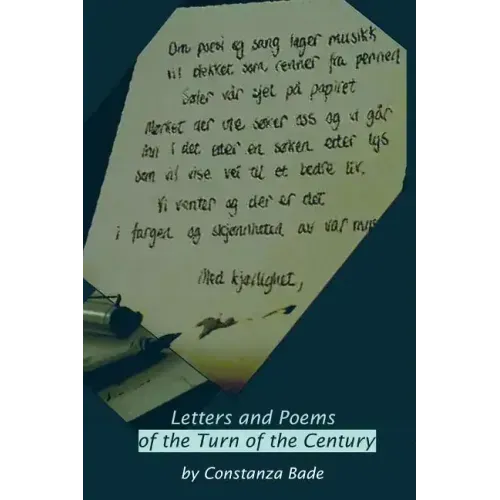 Om poesi og sang lager musikk
til dekket som renner fra pennen
Søler vår sjel på papiret
Mørket der ute søker oss og vi går
inn i det etter en søken etter lys
som vil vise vei til et bedre liv.
Vi venter og der er det
i fargen og skjønnheten av vår
Med kjærlighet,
Letters and Poems
of the Turn of the Century
by Constanza Bade